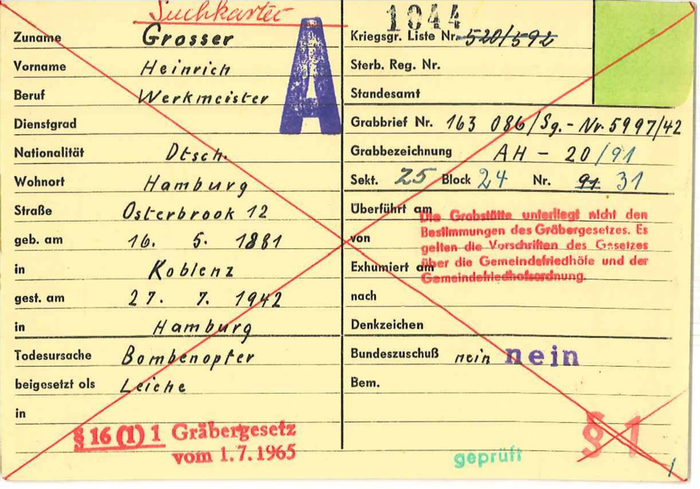 Suchkartei
Zuname Grosser
Vorname Heinrich
Beruf Werkmeister
Dienstgrad
Nationalität Dtsch.
Wohnort Hamburg
Straße Osterbrook 12
geb. am 16. 5. 1881
in Koblenz
gest. am 27. 7. 1942
in Hamburg
Todesursache Bombenopfer
beigesetzt als Leiche
in
§ 16 (1) 1 Gräbergesetz
vom 1.7.1965
A
1044
Kriegsgr. Liste Nr. 520/592
Sterb. Reg. Nr.
Standesamt
Grabbrief Nr. 163 086/Sg.-Nr. 5997/42
Grabbezeichnung AH - 20/91
Sekt. Z5 Block 24 Nr. 91 31
Überführt am
von
Exhumiert am
nach
Die Grabstätte unterliegt nicht den
Bestimmungen des Gräbergesetzes. Es
gelten die Vorschriften des Gesetzes
über die Gemeindefriedhöfe und der
Gemeindefriedhofsordnung.
Denkzeichen
Bundeszuschuß nein nein
Bem.
geprüft
§ 1
1